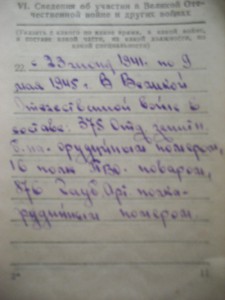 VI. Сведения об участии в Великой Оте-
чественной войне и других войнах
(Указать с какого по какое время, в какой войне,
в составе какой части, на какой должности, по
какой специальности)
22. с 23 июня 1941. по 9
мая 1945г. В Великой
Отечественной войне в
составе: 375 Отд зенитн
орудийным номером,
16 полк Пво. поваром,
876 Гауб. Арт полка
рудийным номером
11